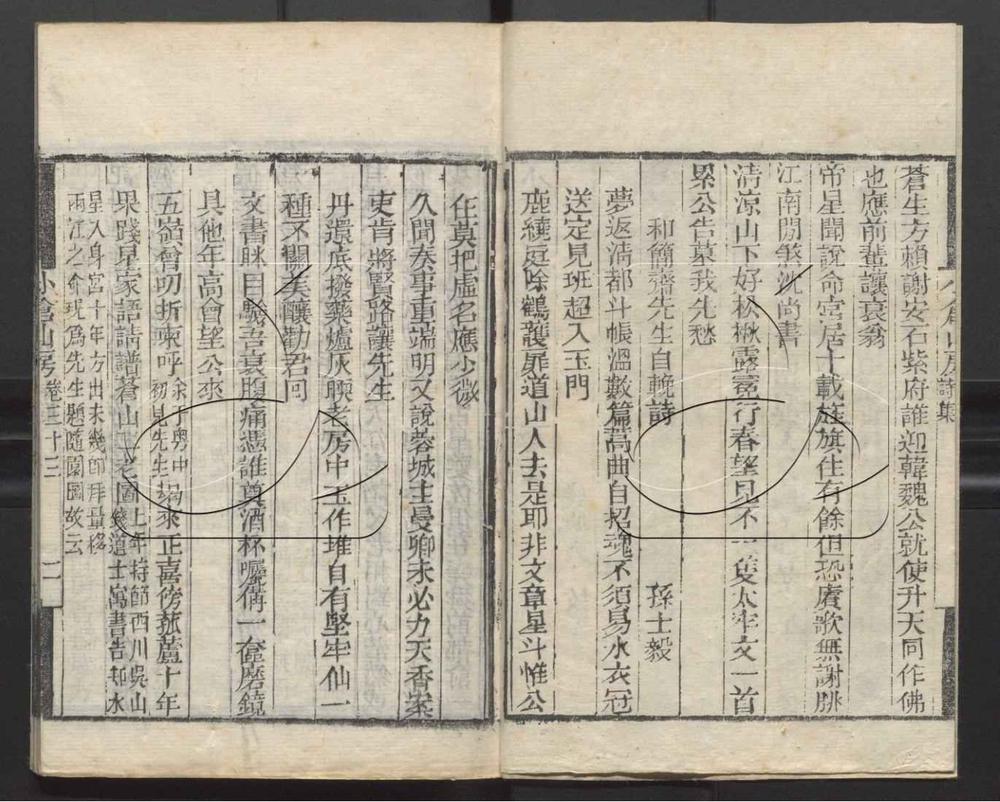 蒼生方賴謝安石紫府誰迎韓魏公就使升天同作佛
也應前輩讓衰翁
帝星聞說命宮居十載旌旗住有餘但恐賡歌無謝朓
江南閒煞沈尚書
清凉山下好松楸露冕行春望見不一隻太牢文一首
累公告墓我先愁
和簡齋先生自輓詩
孫士毅
夢返清都斗帳溫數篇蒿曲自招魂不須易水衣冠
送定見班超入玉門
鹿繞庭除鶴護扉道山人去是耶非文章星斗惟公
在莫把虛名應少微
久聞奏事重端明又說蓉城主曼卿未必九天香案
吏肯將賢路讓先生
丹還底撥藥爐灰睺老房中玉作堆自有堅牢仙一
種不關羙釀勸君回
文書眯目驗吾衰腹痛憑誰奠酒杯囑備一奩磨鏡
具他年高會望公來
五嶺曾叨折柬呼余于粤中初見先生朅來正喜傍菰蘆十年
果踐星家語請譜蒼山二老圖上年持節西川吳山錢道士寓書告却水
星入身宮十年方出未幾即拜量移
兩江之命現爲先生題隨園圖故云
小倉山房卷三十三
二